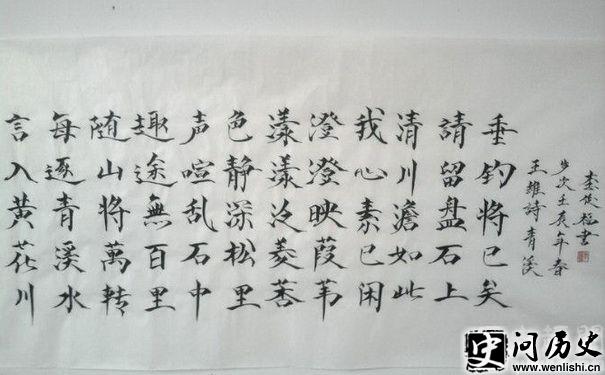 言入黄花川
每逐青溪水
随山將萬转
趣途無百里
声喧乱石中
色静深松里
漾漾泛菱莕
澄澄映葭苇
我心素已闲
清川澹如此
請留盘石上
垂钓將已矣
王維詩青溪
岁次壬辰年春
李俊書
史 问历史
www.wenlishi.cn